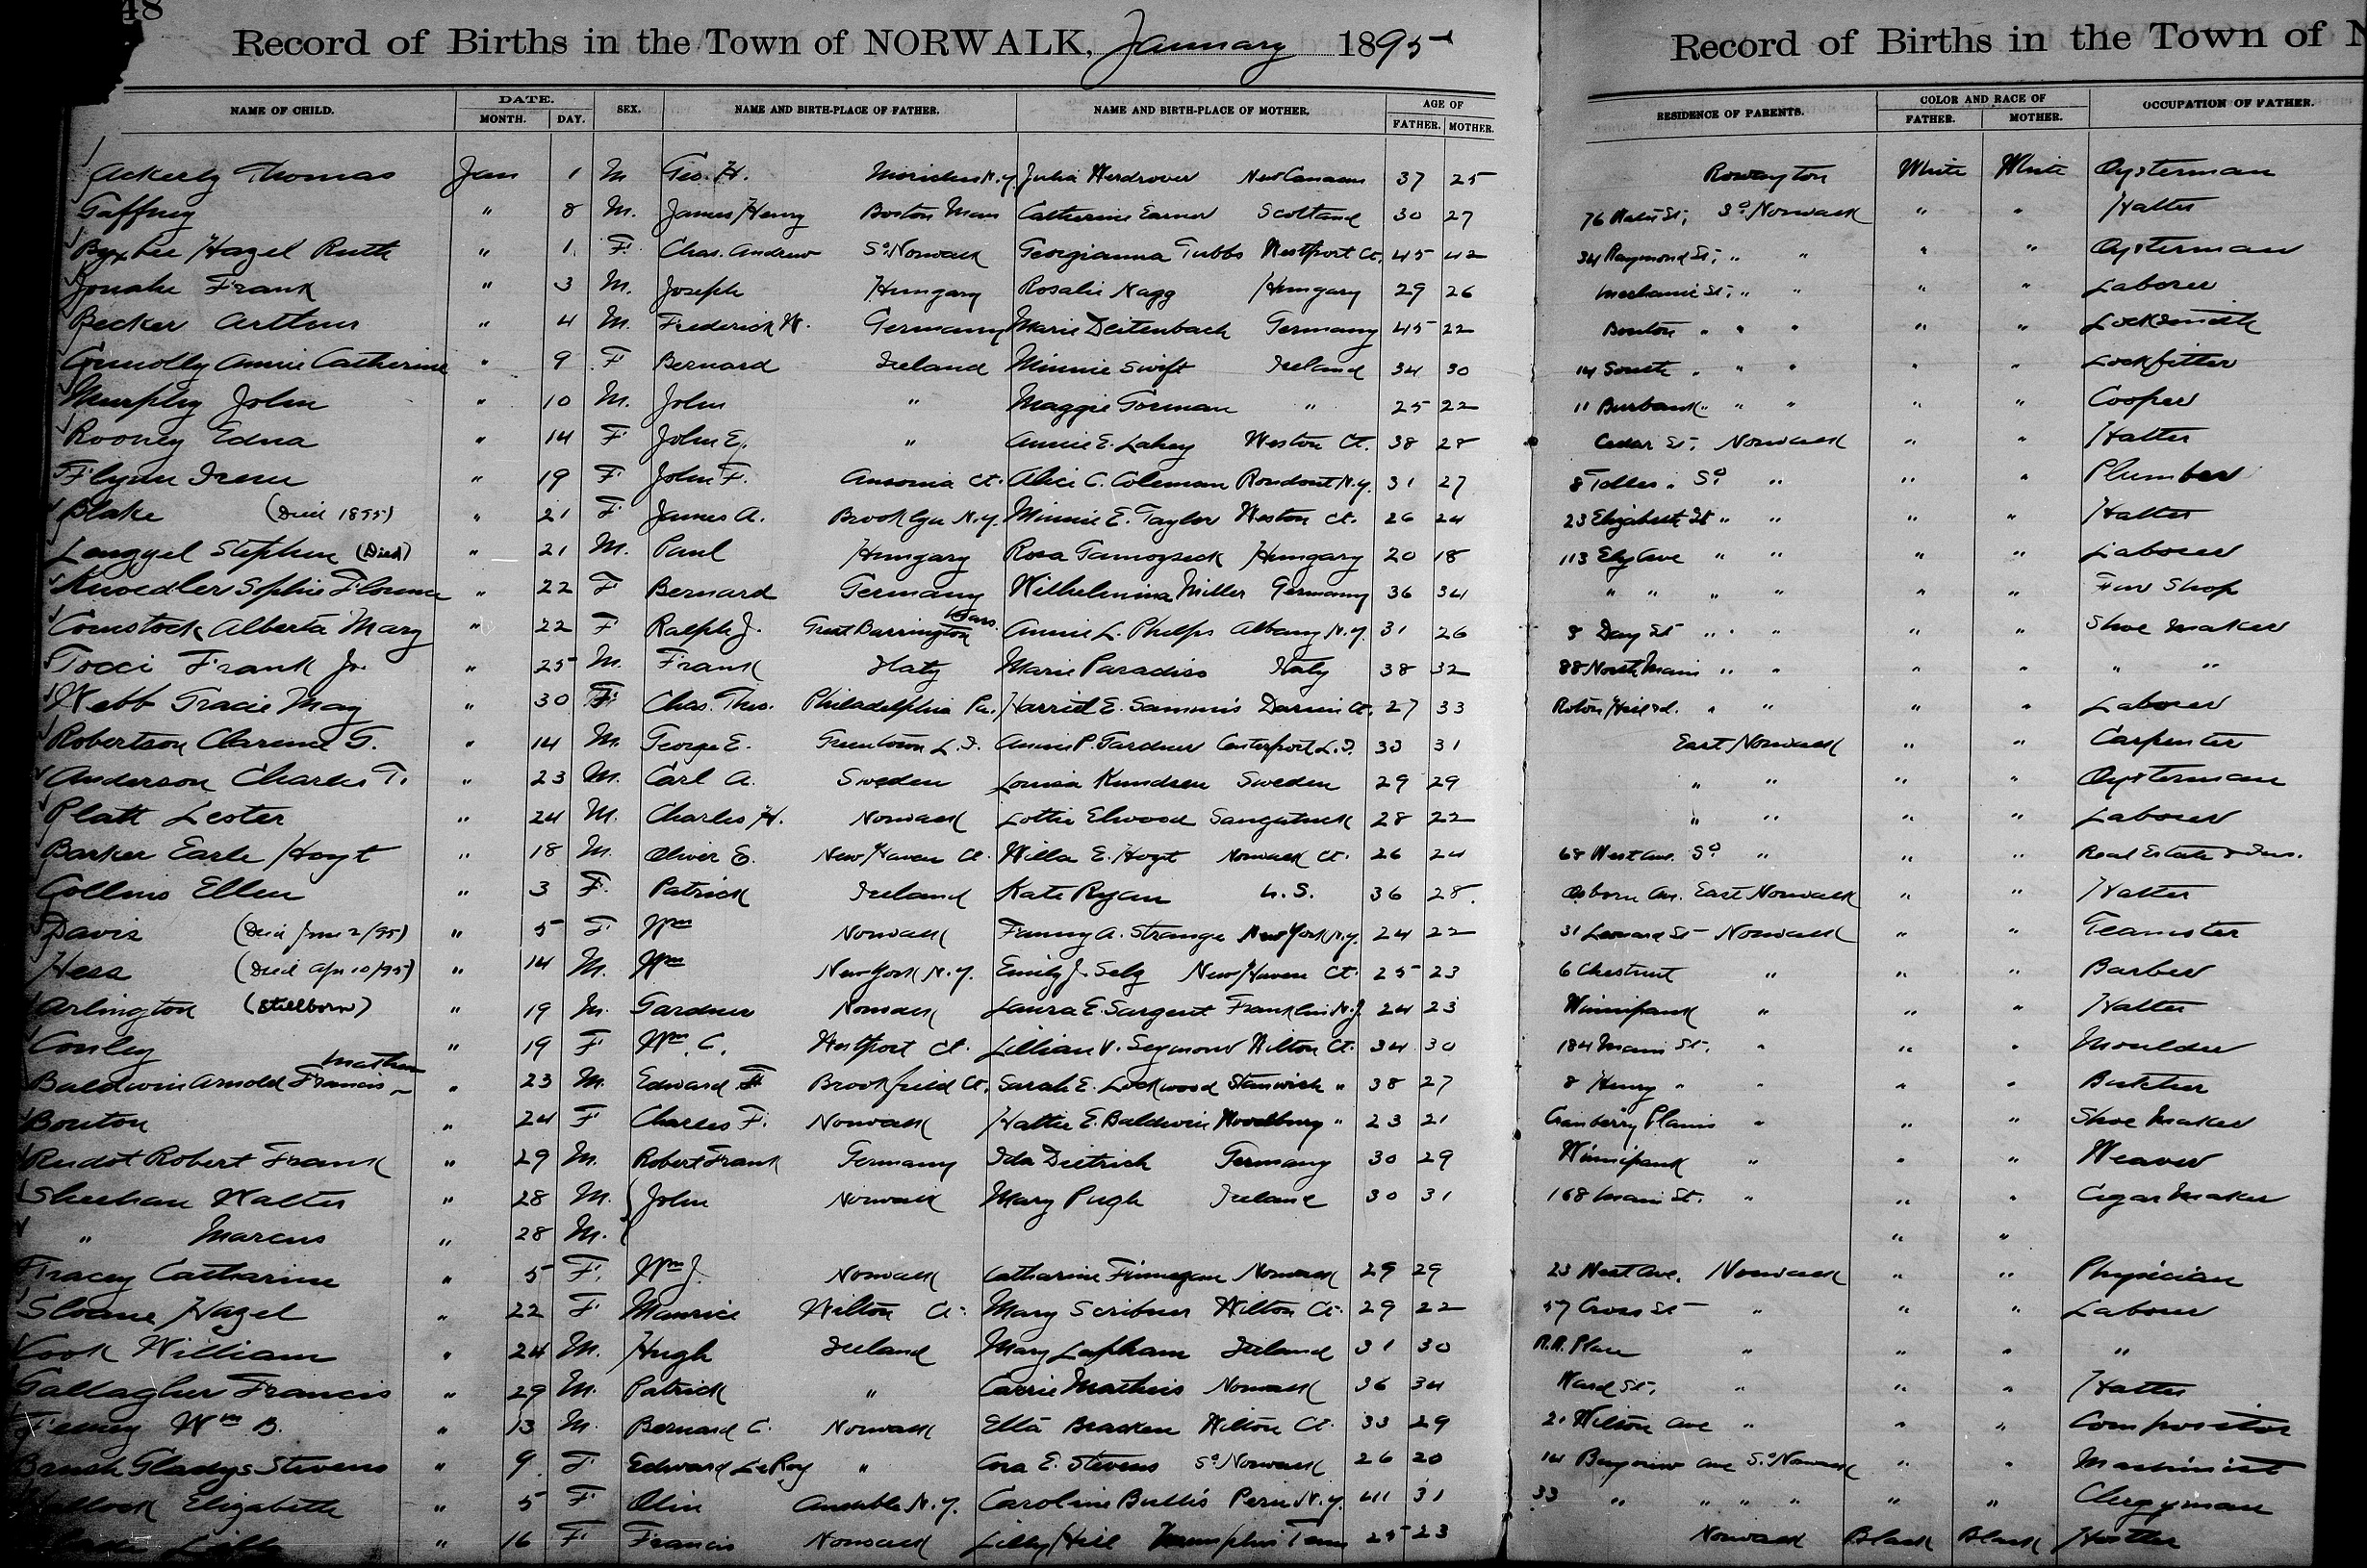 48
Record of Births in the Town of NORWALK, January 1895 Record of Births in the Town of N
NAME OF CHILD. DATE. MONTH. DAY. SEX. NAME AND BIRTH-PLACE OF FATHER. NAME AND BIRTH-PLACE OF MOTHER. AGE OF FATHER. MOTHER. RESIDENCE OF PARENTS. COLOR AND RACE OF FATHER. MOTHER. OCCUPATION OF FATHER.
Ackerly Thomas Jan 1 M Geo. H. Moriches N.Y. Julia New Canaan 37 25 Rowayton White White Oysterman
Gaffney " 8 M. James Henry Boston Mass Catherine Scotland 30 27 76 Water St, So Norwalk " " Hatter
Byxbee Hazel Ruth " 1 F. Chas. Andrew So Norwalk Georgianna Tubbs Westport Ct. 45 42 34 Raymond St, " " " " Oysterman
Frank " 3 M. Joseph Hungary Rosalie Nagg Hungary 29 26 Mechanic St, " " " " Laborer
Becker Arthur " 4 M. Frederick W. Germany Marie Deitenbach Germany 45 22 Bouton " " " " " Locksmith
Connolly Annie Catherine " 9 F Bernard Ireland Minnie Swift Ireland 34 30 14 South " " " " " Lockfitter
Murphy John " 10 M. John " Maggie Gorman " 25 22 11 Burbank " " " " " Cooper
Rooney Edna " 14 F John E. " Annie E. Lahey Weston Ct. 38 28 Cedar St, Norwalk " " Hatter
Flynn Irene " 19 F John F. Ansonia Ct. Alice C. Coleman Rondout N.Y. 31 27 8 Tolles " So " " " Plumber
Blake (Died 1895) " 21 F James A. Brooklyn N.Y. Minnie E. Taylor Weston Ct. 26 24 23 Elizabeth St " " " " Hatter
Lengyel Stephen (Died) " 21 M. Paul Hungary Rosa Hungary 20 18 113 Ely Ave " " " " Laborer
Knoedler Sophie Florence " 22 F Bernard Germany Wilhelmina Miller Germany 36 34 " " " " " " Fur Shop
Comstock Alberta Mary " 22 F Ralph J. Great Barrington Mass. Annie L. Phelps Albany N.Y. 31 26 8 Day St " " " " Shoe Maker
Tocci Frank Jr. " 25 M. Frank Italy Marie Paradiso Italy 38 32 88 North Main " " " " " "
Webb Gracie May " 30 F. Chas. Theo. Philadelphia Pa. Harriet E. Sammis Darien Ct. 27 33 Roton Hill rd. " " " " Laborer
Robertson Clarence G. " 14 M. George E. Greentown L.I. Annie P. Gardner Centerport L.I. 33 31 East Norwalk " " Carpenter
Anderson Charles T. " 23 M. Carl A. Sweden Louisa Knudsen Sweden 29 29 " " " " Oysterman
Platt Lester " 24 M. Charles H. Norwalk Lottie Elwood Saugatuck 28 22 " " " " Laborer
Barker Earle Hoyt " 18 M. Oliver E. New Haven Ct. Willa E. Hoyt Norwalk Ct. 26 24 68 West Ave. So " " " Real Estate & Ins.
Collins Ellen " 3 F. Patrick Ireland Kate Ryan U.S. 36 28. Osborn Av. East Norwalk " " Hatter
Davis (Died June 2/95) " 5 F. Wm Norwalk Fanny A. Strange New York N.Y. 24 22 31 Leonard St Norwalk " " Teamster
Hess (Died Apr 10/95) " 14 M. Wm New York N.Y. Emily J. Selg New Haven Ct. 25 23 6 Chestnut " " " Barber
Arlington (Stillborn) " 19 M. Gardner Norwalk Laura E. Sargent Franklin N.J. 24 23 Winnipauk " " " Hatter
Conley " 19 F Wm. C. Westport Ct. Lillian V. Seymour Wilton Ct. 34 30 184 Main St. " " " Moulder
Baldwin Arnold Francis " 23 M. Edward F Brookfield Ct. Sarah E. Lockwood Stanwich " 38 27 8 Henry " " " " Butcher
Bouton " 24 F Charles F. Norwalk Hattie E. Baldwin Woodbury " 23 21 Cranberry Plains " " " Shoe Maker
Rudot Robert Frank " 29 M. Robert Frank Germany Ida Dietrich Germany 30 29 Winnipauk " " " Weaver
Sheehan Walter " 28 M. John Norwalk Mary Pugh Ireland 30 31 168 Main St. " " " Cigar Maker
" Marcus " 28 M. " "
Tracey Catharine " 5 F. Wm J. Norwalk Catharine Finnegan Norwalk 29 29 23 West Ave. Norwalk " " Physician
Sloane Hazel " 22 F Maurice Wilton Ct. Mary Scribner Wilton Ct. 29 22 57 Cross St " " " Laborer
Cook William " 24 M. Hugh Ireland Mary Lapham Ireland 31 30 R.R. Place " " " "
Gallagher Francis " 29 M. Patrick " Carrie Mathies Norwalk 36 34 Ward St, " " " Hatter
Wm B. " 13 M. Bernard C. Norwalk Ella Bracken Wilton Ct. 33 29 21 Wilton Ave " " " Compositor
Brush Gladys Stevens " 9 F Edward LeRoy " Cora E. Stevens So Norwalk 26 20 14 Ave So Norwalk " " Machinist
Elizabeth " 5 F Olin Ausable N.Y. Caroline Bullis Peru N.Y. 41 31 33 " " " " " " Clergyman
" 16 F. Francis Norwalk Lilly Hill Memphis Tenn 25 23 Norwalk Black Black Hostler